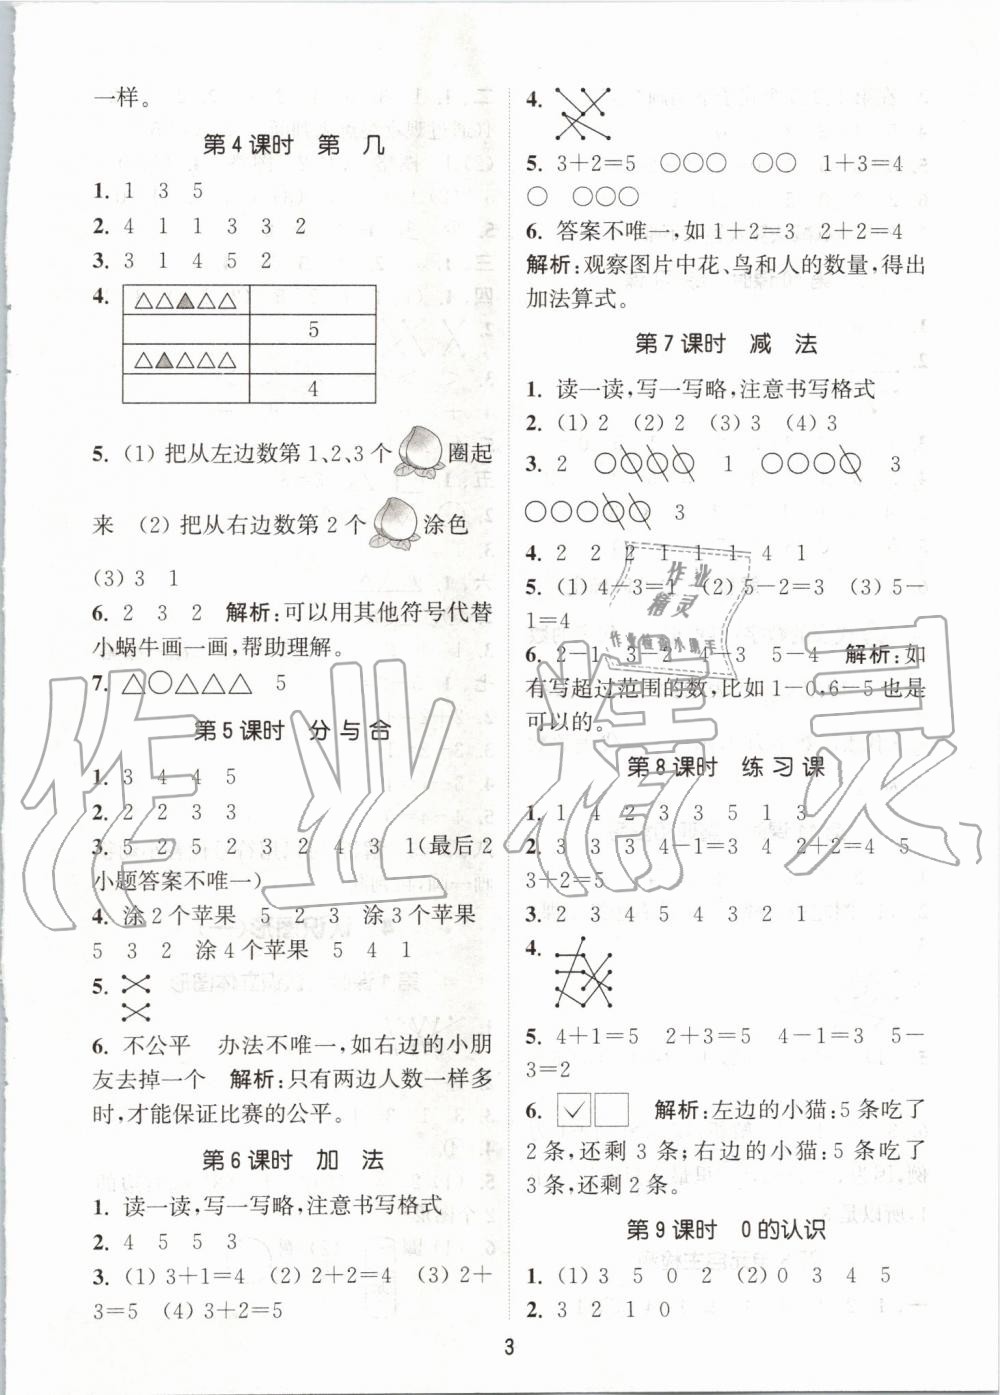 一样。
第4课时 第 几
1. 1 3 5
2. 4 1 1 3 3 2
3. 3 1 4 5 2
4. △△▲△△
5
△▲△△△
4
5. (1) 把从左边数第1、2、3个 圈起
来 (2) 把从右边数第2个 涂色
(3) 3 1
6. 2 3 2 解析:可以用其他符号代替
小蜗牛画一画,帮助理解。
7. △○△△△ 5
第5课时 分与合
1. 3 4 4 5
2. 2 2 3 3
3. 5 2 5 2 3 2 4 3 1(最后2
小题答案不唯一)
4. 涂2个苹果 5 2 3 涂3个苹果
5 3 2 涂4个苹果 5 4 1
5.
6. 不公平 办法不唯一,如右边的小朋
友去掉一个 解析:只有两边人数一样多
时,才能保证比赛的公平。
第6课时 加 法
1. 读一读,写一写略,注意书写格式
2. 4 5 5 3
3. (1) 3+1=4 (2) 2+2=4 (3) 2+
3=5 (4) 3+2=5
4.
5. 3+2=5 ○○○ ○○ 1+3=4
○ ○○○
6. 答案不唯一,如1+2=3 2+2=4
解析:观察图片中花、鸟和人的数量,得出
加法算式。
第7课时 减 法
1. 读一读,写一写略,注意书写格式
2. (1) 2 (2) 2 (3) 3 (4) 3
3. 2 ○○○○ 1 ○○○○ 3
○○○○○ 3
4. 2 2 2 1 1 1 4 1
5. (1) 4-3=1 (2) 5-2=3 (3) 5-
1=4
6. 2-1 3-2 4-3 5-4 解析:如
有写超过范围的数,比如1-0,6-5也是
可以的。
第8课时 练习课
1. 1 4 2 3 3 5 1 3
2. 3 3 3 4-1=3 4 2+2=4 5
3+2=5
3. 2 3 4 5 4 3 2 1
4.
5. 4+1=5 2+3=5 4-1=3 5-
3=2
6. ✓ 解析:左边的小猫:5条吃了
2条,还剩3条;右边的小猫:5条吃了
3条,还剩2条。
第9课时 0的认识
1. (1) 3 5 0 2 (2) 0 3 4 5
2. 3 2 1 0
3
作业精灵
作业
精灵
作业检查小助手